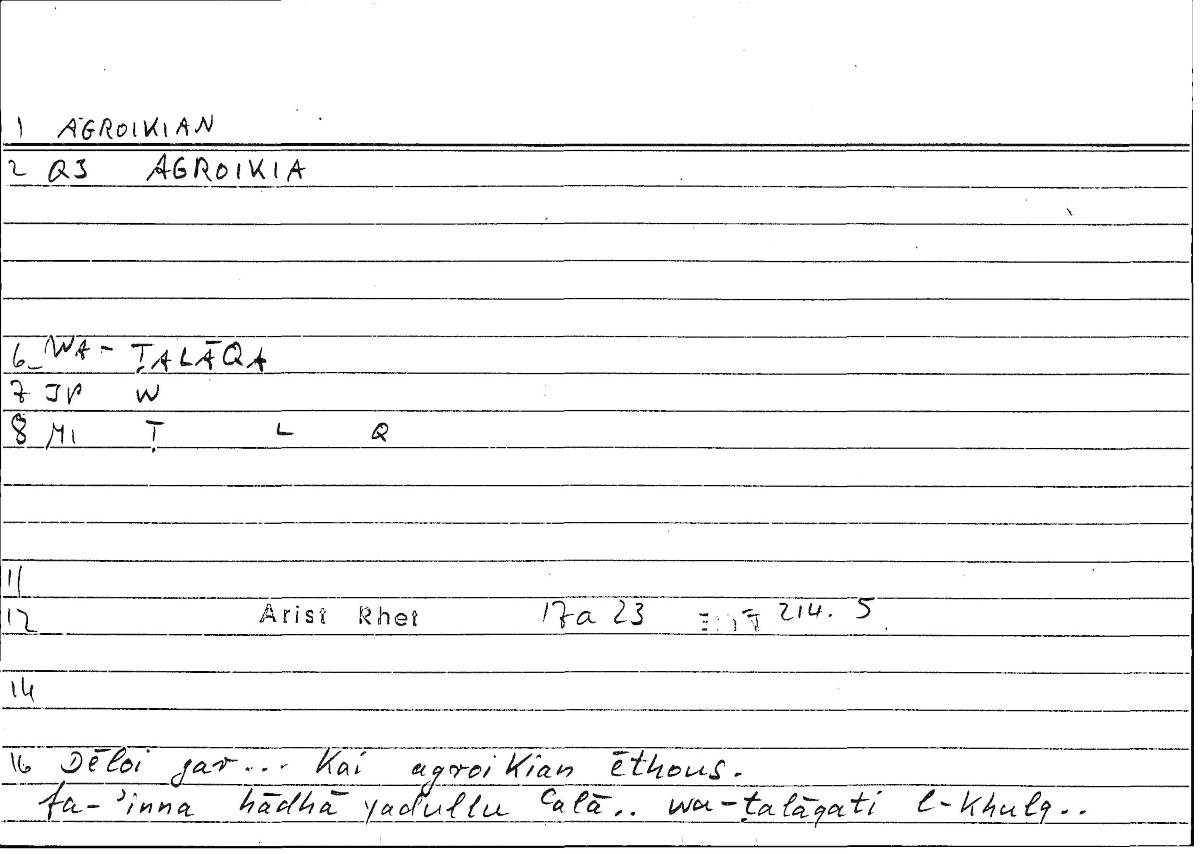 1 AGROIKIAN
2 QJ AGROIKIA
6 WA- ṬALĀQA
7 JP W
8 MI Ṭ L Q
11
12 Arist Rhet 17a 23 214. 5
14
16 Dēloi gar... Kai agroikian ēthous.
fa-ʾinna hādhā yadullu ʿalā.. wa-ṭalāqati l-Khulq..